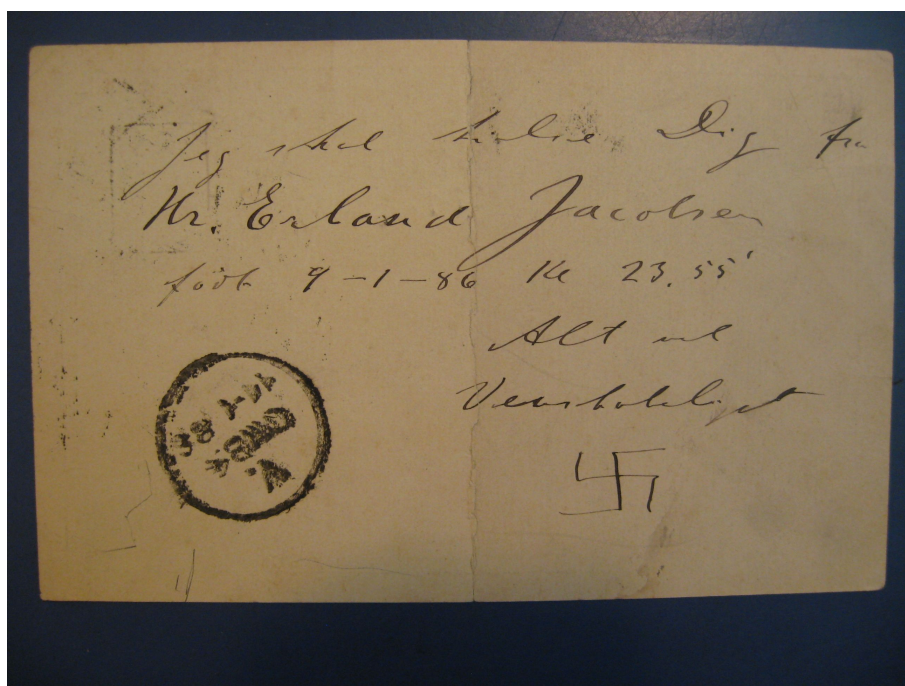 Jeg skal hilse Dig fra
Hr. Erland Jacobsen
født 9-1-86 Kl 23.55'
Alt vel
Venskabeligst